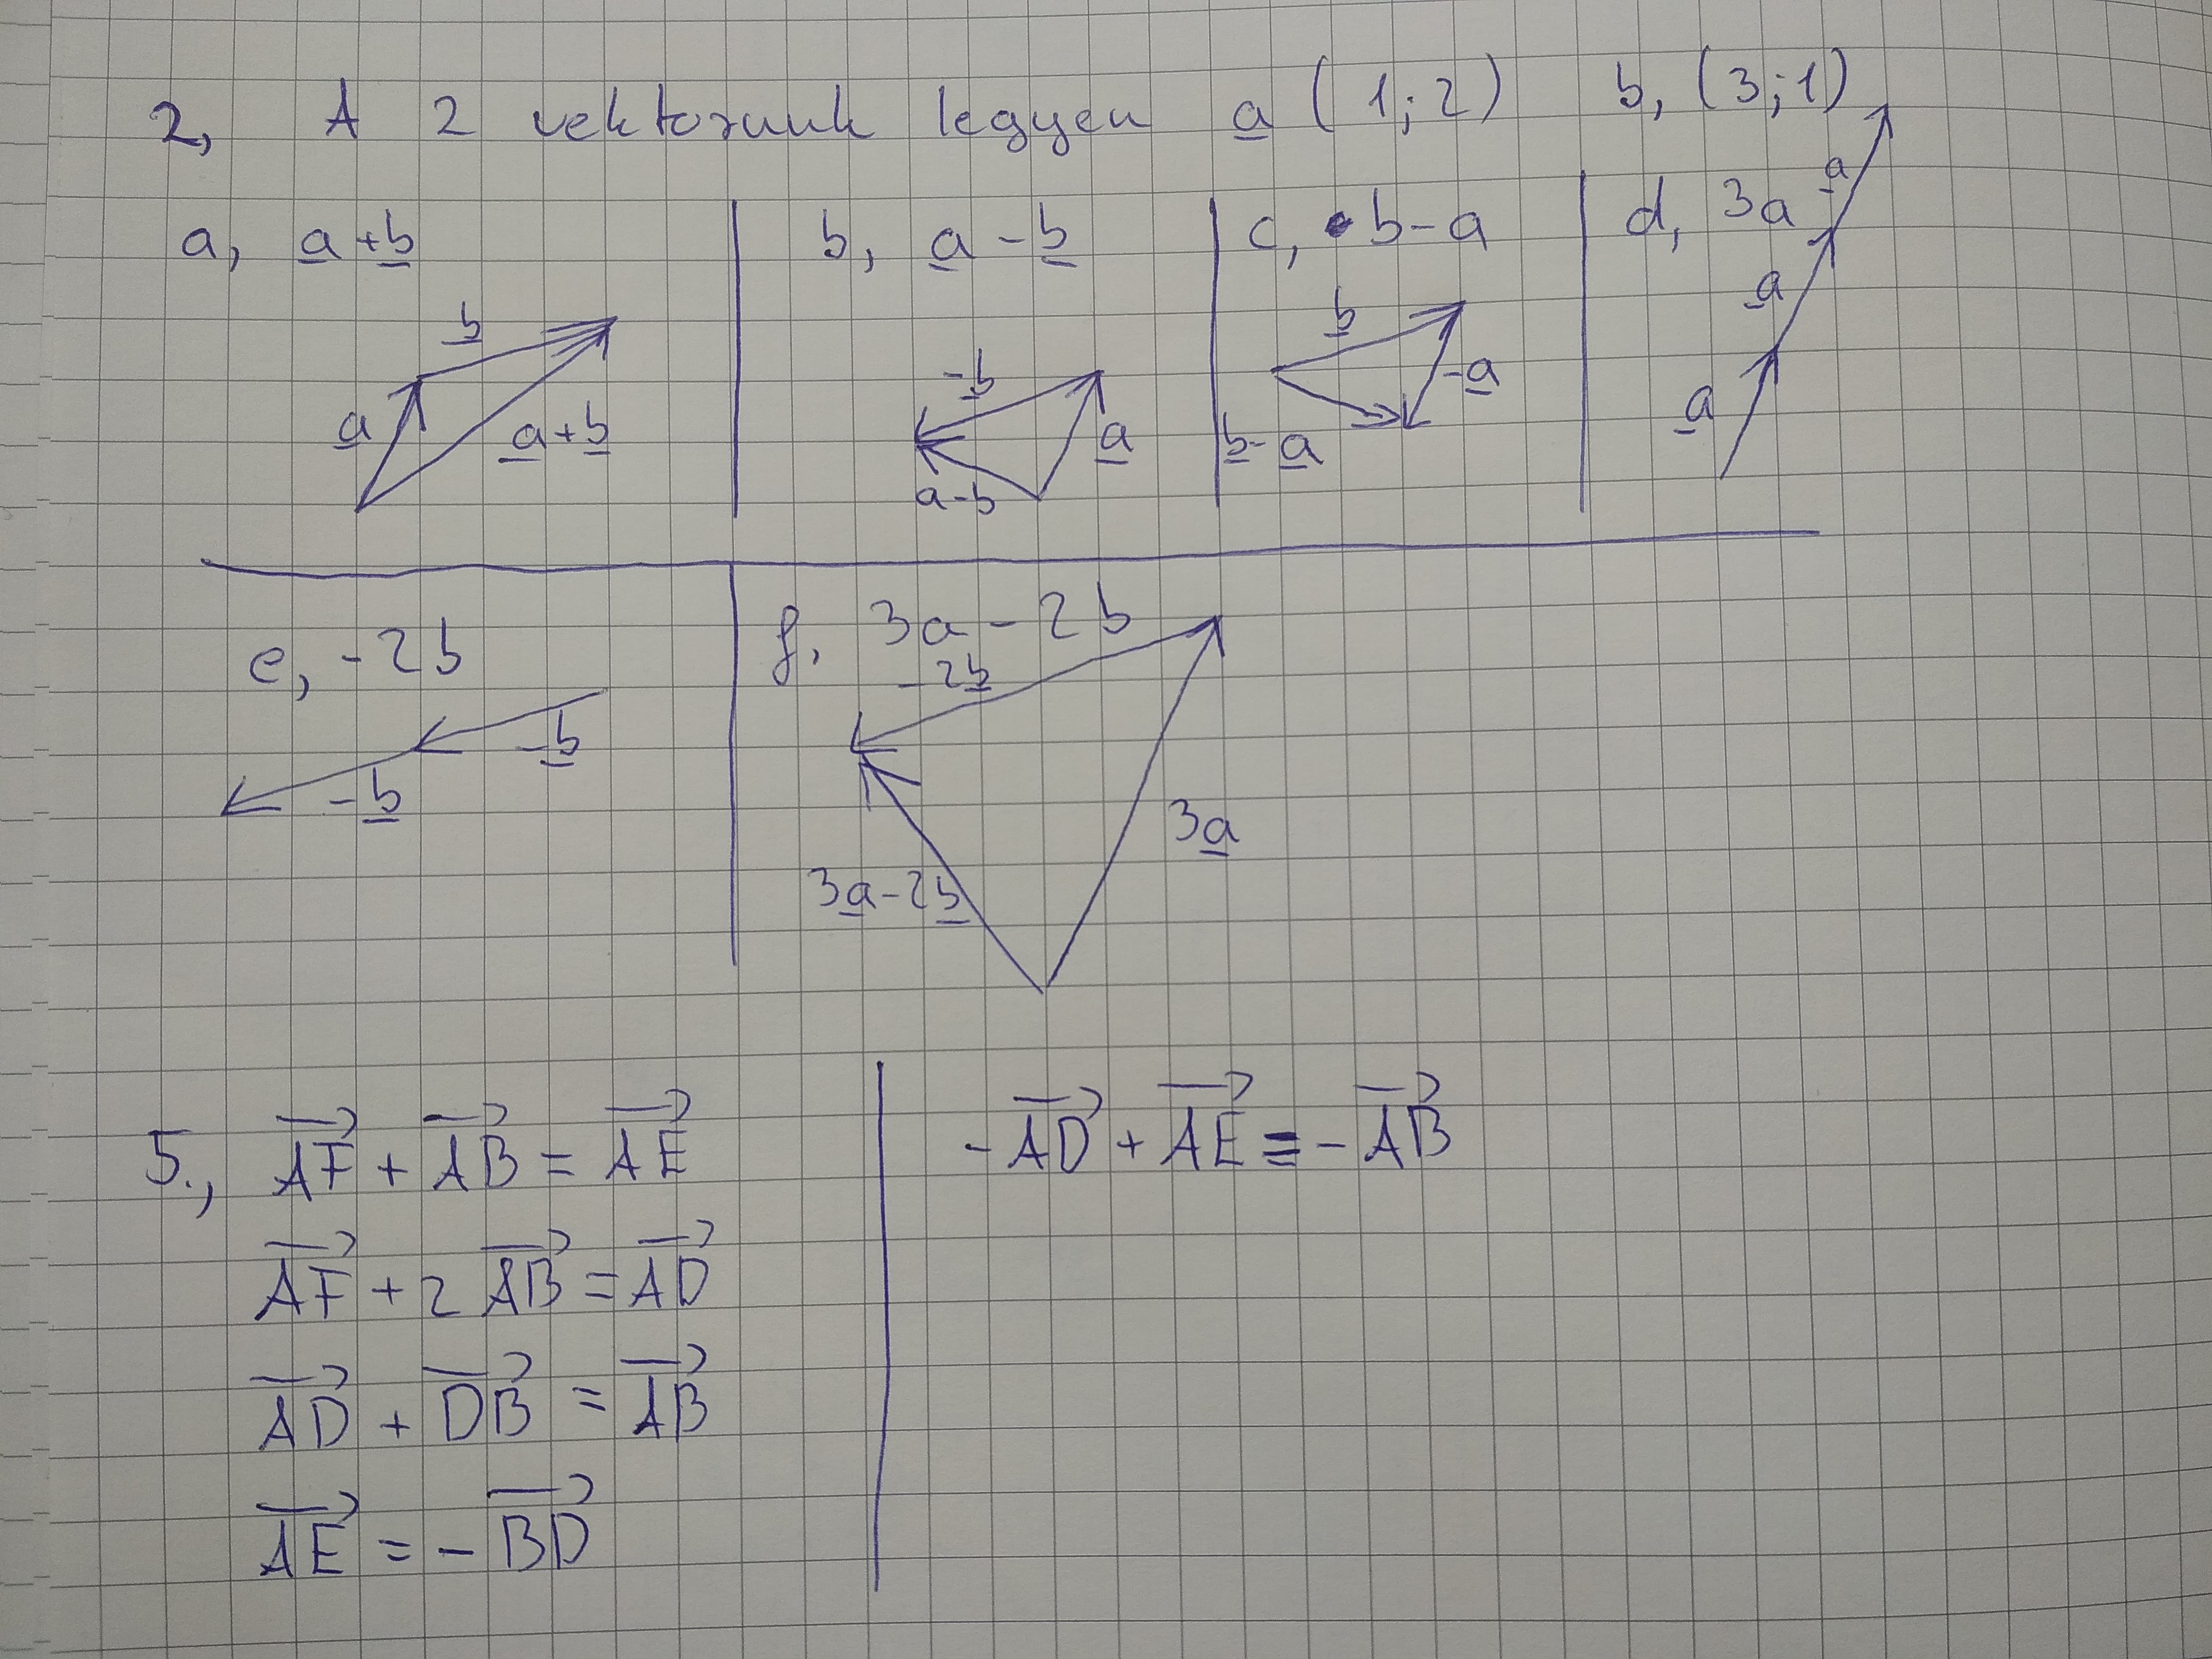 2, A 2 vektorunk legyen a (1;2) b, (3;1)
a, a+b
b
a
a+b
b, a-b
-b
a
a-b
c, b-a
b
-a
b-a
d, 3a
a
a
a
e, -2b
-b
-b
f, 3a-2b
-2b
3a
3a-2b
5., AF + AB = AE
AF + 2 AB = AD
AD + DB = AB
AE = - BD
-AD + AE = -AB